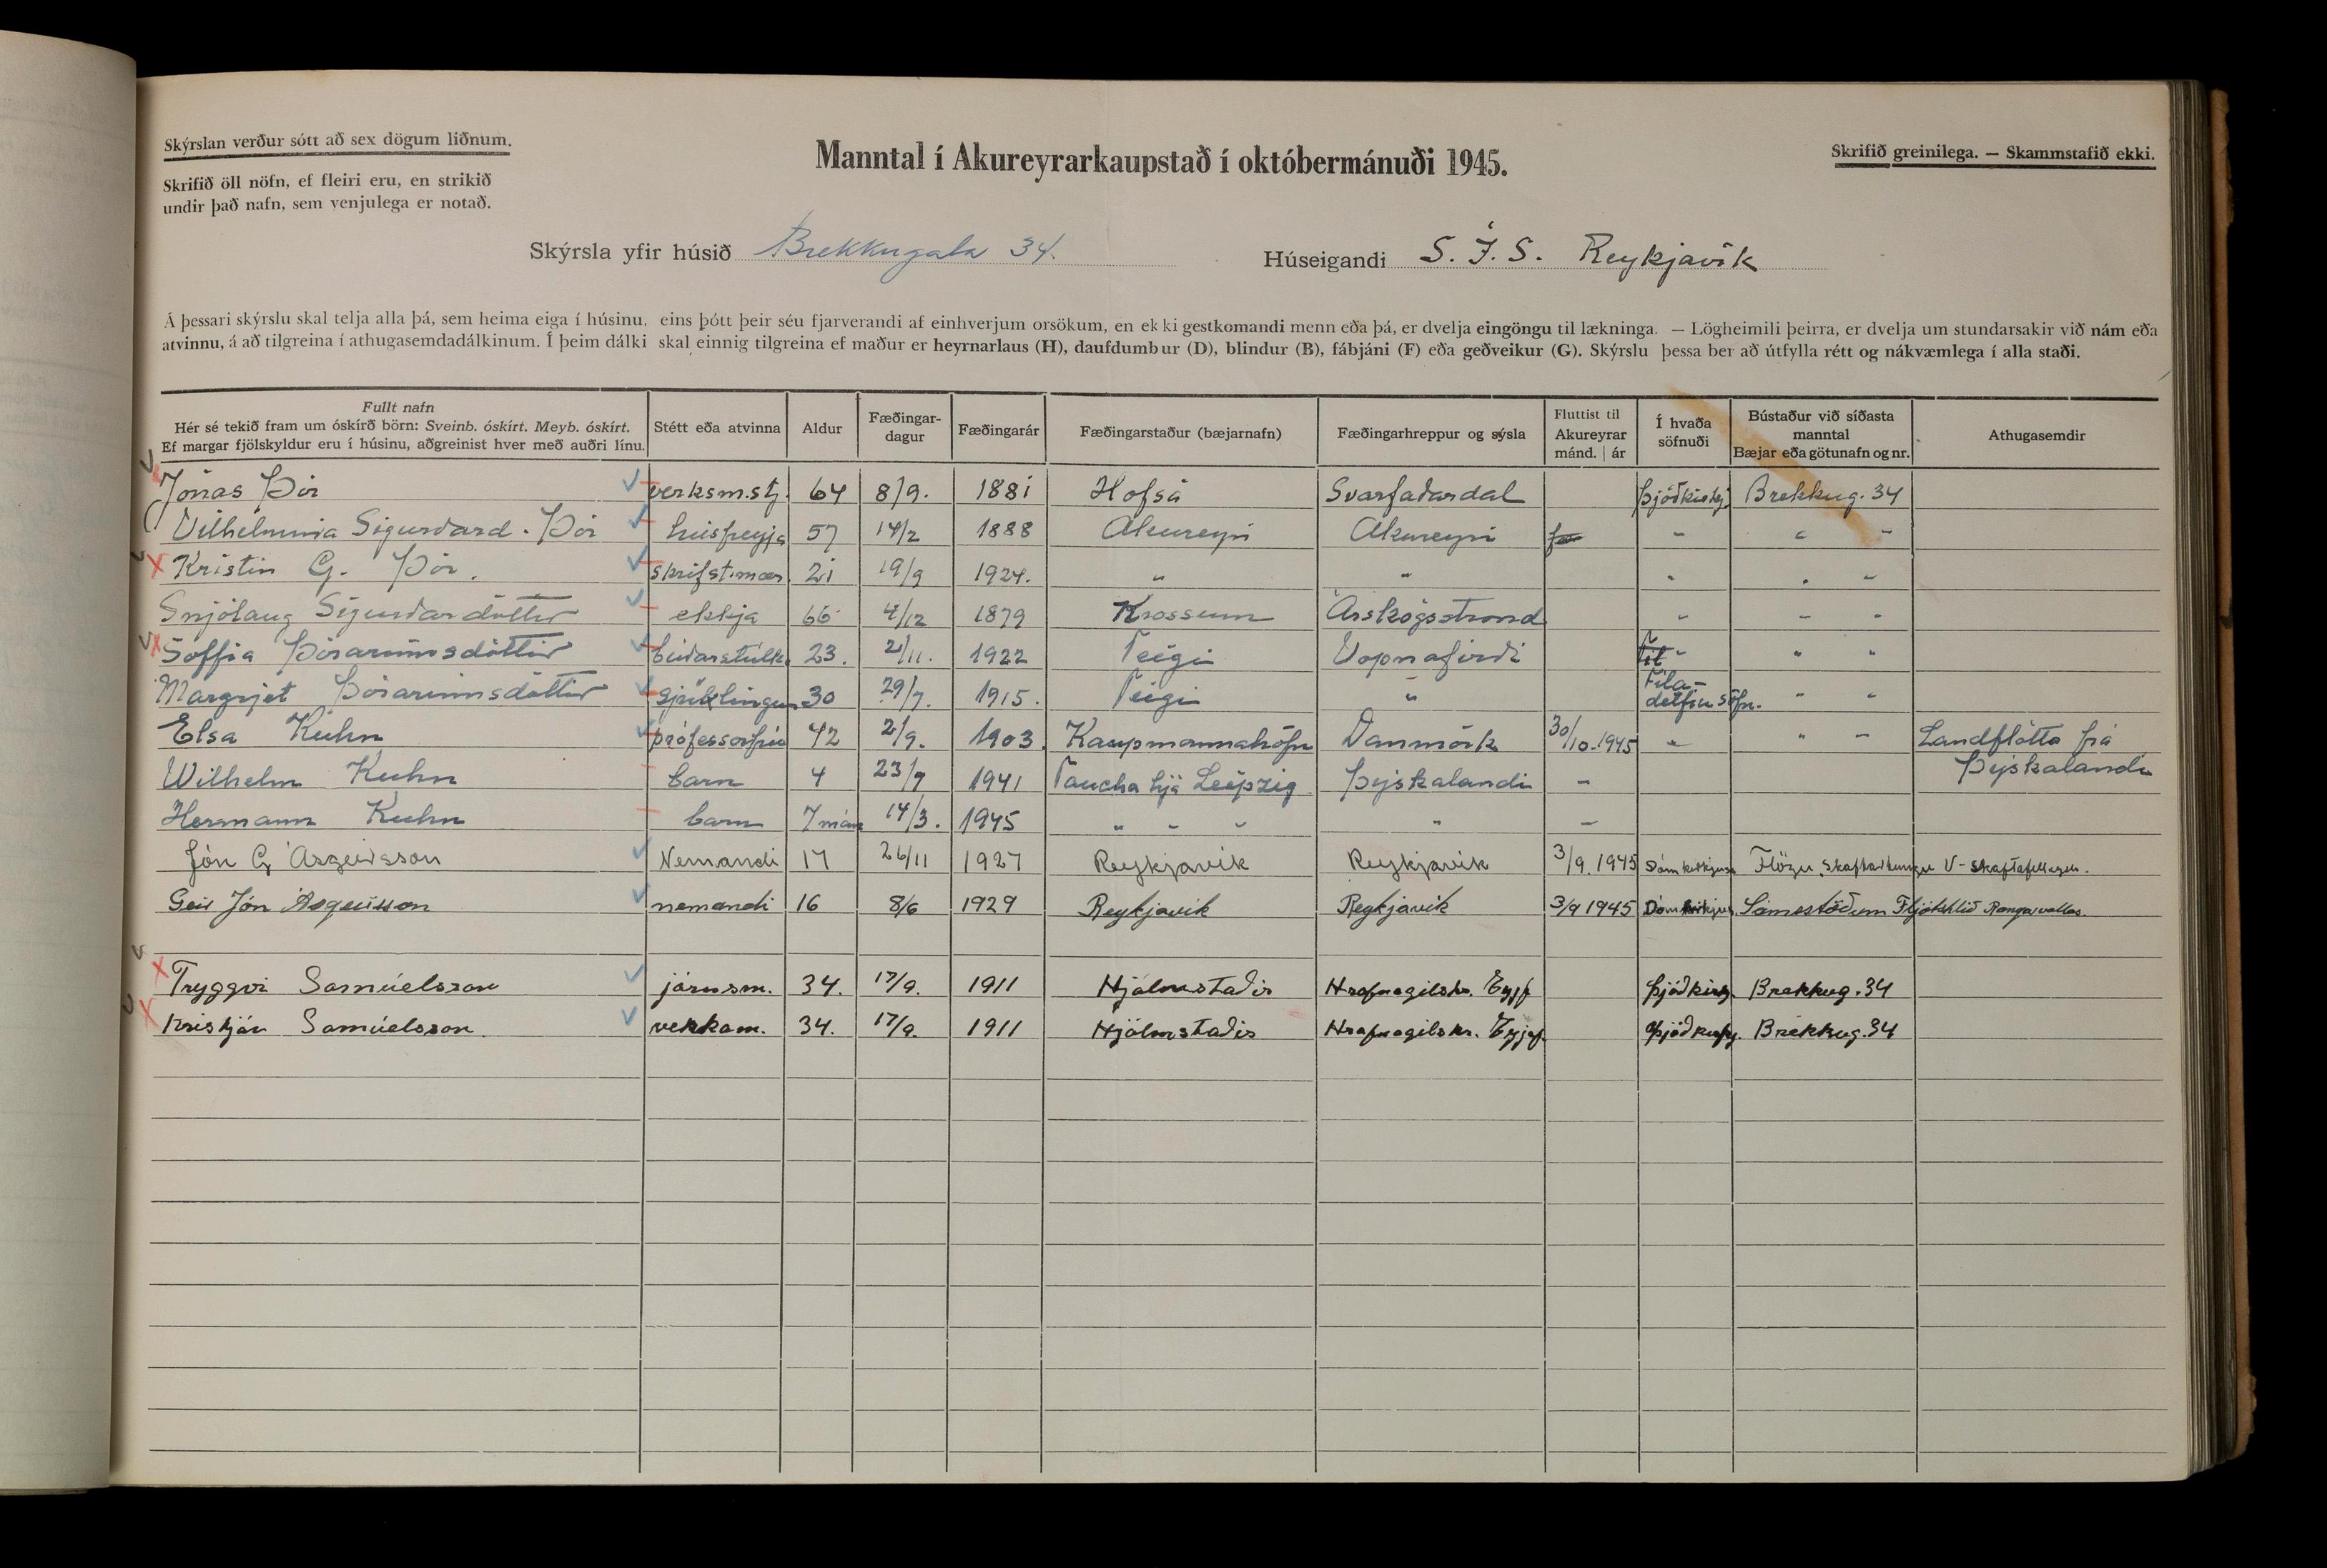 Skýrslan verður sótt að sex dögum liðnum.
Skrifið öll nöfn, ef fleiri eru, en strikið
undir það nafn, sem venjulega er notað.
Manntal í Akureyrarkaupstað í októbermánuði 1945.
Skrifið greinilega. — Skammstafið ekki.
Skýrsla yfir húsið Brekkugata 34.
Húseigandi S. Í. S. Reykjavík
Á þessari skýrslu skal telja alla þá, sem heima eiga í húsinu, eins þótt þeir séu fjarverandi af einhverjum orsökum, en ekki gestkomandi menn eða þá, er dvelja eingöngu til lækninga. — Lögheimili þeirra, er dvelja um stundarsakir við nám eða
atvinnu, á að tilgreina í athugasemdadálkinum. Í þeim dálki skal einnig tilgreina ef maður er heyrnarlaus (H), daufdumbur (D), blindur (B), fábjáni (F) eða geðveikur (G). Skýrslu þessa ber að útfylla rétt og nákvæmlega í alla staði.
Fullt nafn
Hér sé tekið fram um óskírð börn: Sveinb. óskírt. Meyb. óskírt.
Ef margar fjölskyldur eru í húsinu, aðgreinist hver með auðri línu.
Stétt eða atvinna
Aldur
Fæðingar-
dagur
Fæðingarár
Fæðingarstaður (bæjarnafn)
Fæðingarhreppur og sýsla
Fluttist til
Akureyrar
mánd. | ár
Í hvaða
söfnuði
Bústaður við síðasta
manntal
Bæjar eða götunafn og nr.
Athugasemdir
Jónas Þór verksm.stj. 64 8/9. 1881 Hofsá Svarfaðardal Þjóðkirkj. Brekkug. 34
Vilhelmina Sigurðard. Þór húsfreyja 57 14/2 1888 Akureyri Akureyri " " "
Kristín G. Þór. skrifst.mær 21 19/9 1924. " " " " "
Snjólaug Sigurðardóttir ekkja 66 4/12 1879 Krossum Árskógsströnd " " "
Soffía Þórarinsdóttir búðarstúlka 23. 2/11. 1922 Teigi Vopnafirði " " "
Margrjet Þórarinsdóttir sjúklingur 30 29/7. 1915. Teigi " Fíla-
delfíu söfn. " "
Elsa Kuhn prófessorfrú 42 2/9. 1903 Kaupmannahöfn Danmörk 30/10.1945 " " " Landflótta frá
Þýskalandi
Wilhelm Kuhn barn 4 23/9 1941 Taucha hjá Leipzig Þýskalandi "
Hermann Kuhn barn 7 mán 14/3. 1945 " " " " "
Jón G Ásgeirsson Nemandi 17 26/11 1927 Reykjavík Reykjavík 3/9. 1945 Dómkirkjus. Flögu, Skaftártungu V-Skaftafellssýslu.
Geir Jón Ásgeirsson nemandi 16 8/6 1929 Reykjavík Reykjavík 3/9 1945 Dómkirkjus. Sámsstöðum Fljótshlíð Rangárvallas.
Tryggvi Samúelsson járnsm. 34. 17/9. 1911 Hjálmstaðir Hrafnagilshr. Eyjf. Þjóðkirkj. Brekkug. 34
Kristján Samúelsson verkam. 34. 17/9. 1911 Hjálmstaðir Hrafnagilshr. Eyjaf. Þjóðkirkj. Brekkug. 34